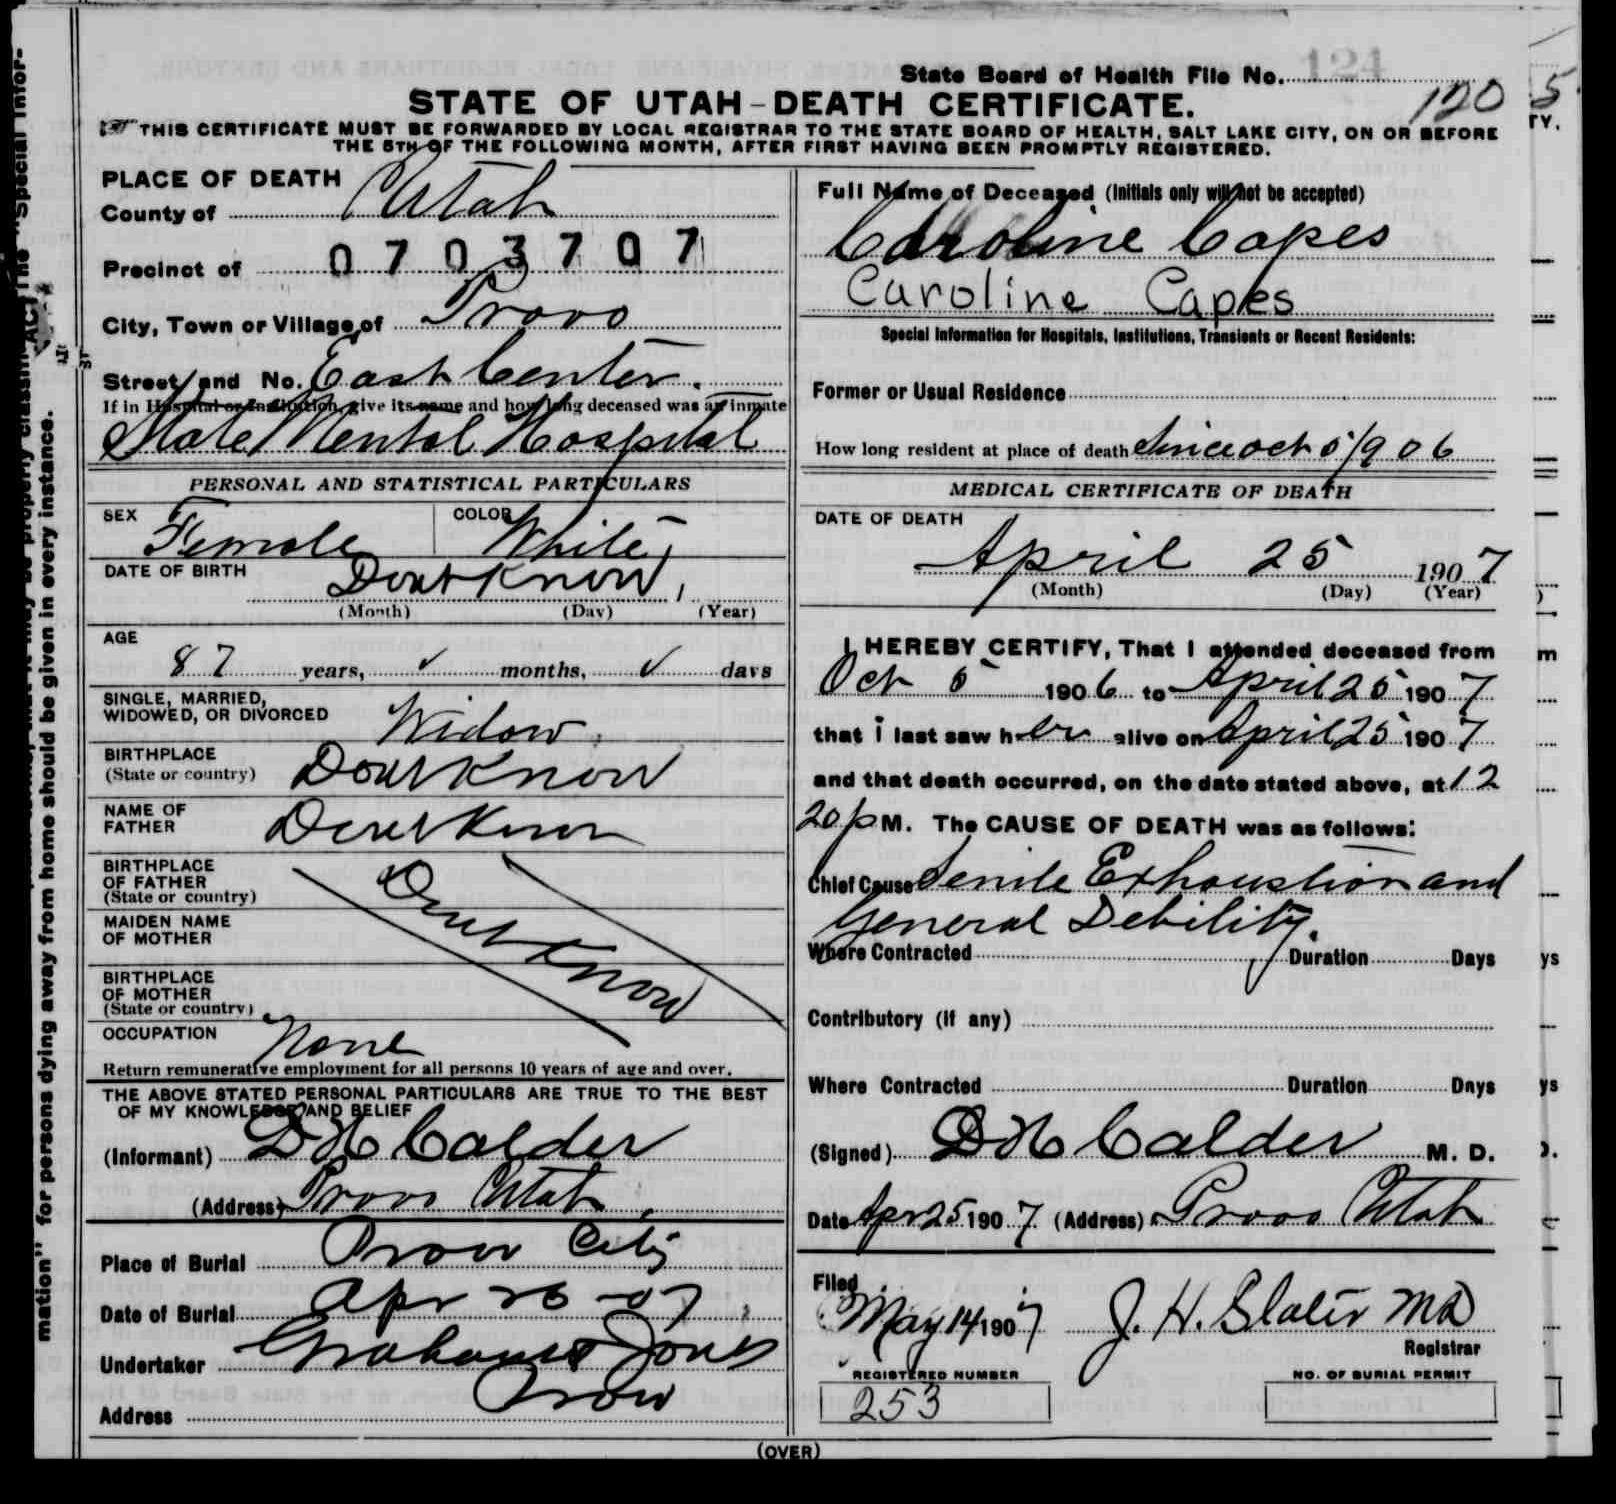 124
State Board of Health File No. 120
5
STATE OF UTAH-DEATH CERTIFICATE.
TY.
THIS CERTIFICATE MUST BE FORWARDED BY LOCAL REGISTRAR TO THE STATE BOARD OF HEALTH, SALT LAKE CITY, ON OR BEFORE
THE 5TH OF THE FOLLOWING MONTH, AFTER FIRST HAVING BEEN PROMPTLY REGISTERED.
PLACE OF DEATH
County of Utah
Precinct of 0703707
City, Town or Village of Provo
Street and No. East Center.
If in Hospital or Institution, give its name and how long deceased was an inmate
State Mental Hospital
PERSONAL AND STATISTICAL PARTICULARS
SEX Female COLOR White,
DATE OF BIRTH Dont Know,
(Month) (Day) (Year)
AGE
87 years, ✓ months, ✓ days
SINGLE, MARRIED,
WIDOWED, OR DIVORCED Widow,
BIRTHPLACE
(State or country) Dont Know
NAME OF
FATHER Dont Know
BIRTHPLACE
OF FATHER
(State or country)
MAIDEN NAME
OF MOTHER
Dont Know
BIRTHPLACE
OF MOTHER
(State or country)
OCCUPATION None
Return remunerative employment for all persons 10 years of age and over.
THE ABOVE STATED PERSONAL PARTICULARS ARE TRUE TO THE BEST
OF MY KNOWLEDGE AND BELIEF
(Informant) D H Calder
(Address) Provo Utah,
Place of Burial Provo City
Date of Burial Apr 26-07
Undertaker Graham & Jones
Provo
Address
Full Name of Deceased (Initials only will not be accepted)
Caroline Capes
Caroline Capes
Special Information for Hospitals, Institutions, Transients or Recent Residents:
Former or Usual Residence
How long resident at place of death Since Oct 5 1906
MEDICAL CERTIFICATE OF DEATH
DATE OF DEATH
April 25 1907
(Month) (Day) (Year)
I HEREBY CERTIFY, That I attended deceased from
Oct 5 1906 to April 25 1907
that I last saw her alive on April 25 1907
and that death occurred, on the date stated above, at 12
20 p M. The CAUSE OF DEATH was as follows:
Chief Cause Senile Exhaustion and
General Debility.
Where Contracted Duration Days
Contributory (if any)
Where Contracted Duration Days
(Signed) D H Calder M. D.
Date Apr 25 1907 (Address) Provo Utah
Filed
May 14 1907 J. H. Slater MD
Registrar
REGISTERED NUMBER NO. OF BURIAL PERMIT
253
(OVER)
mation" for persons dying away from home should be given in every instance.